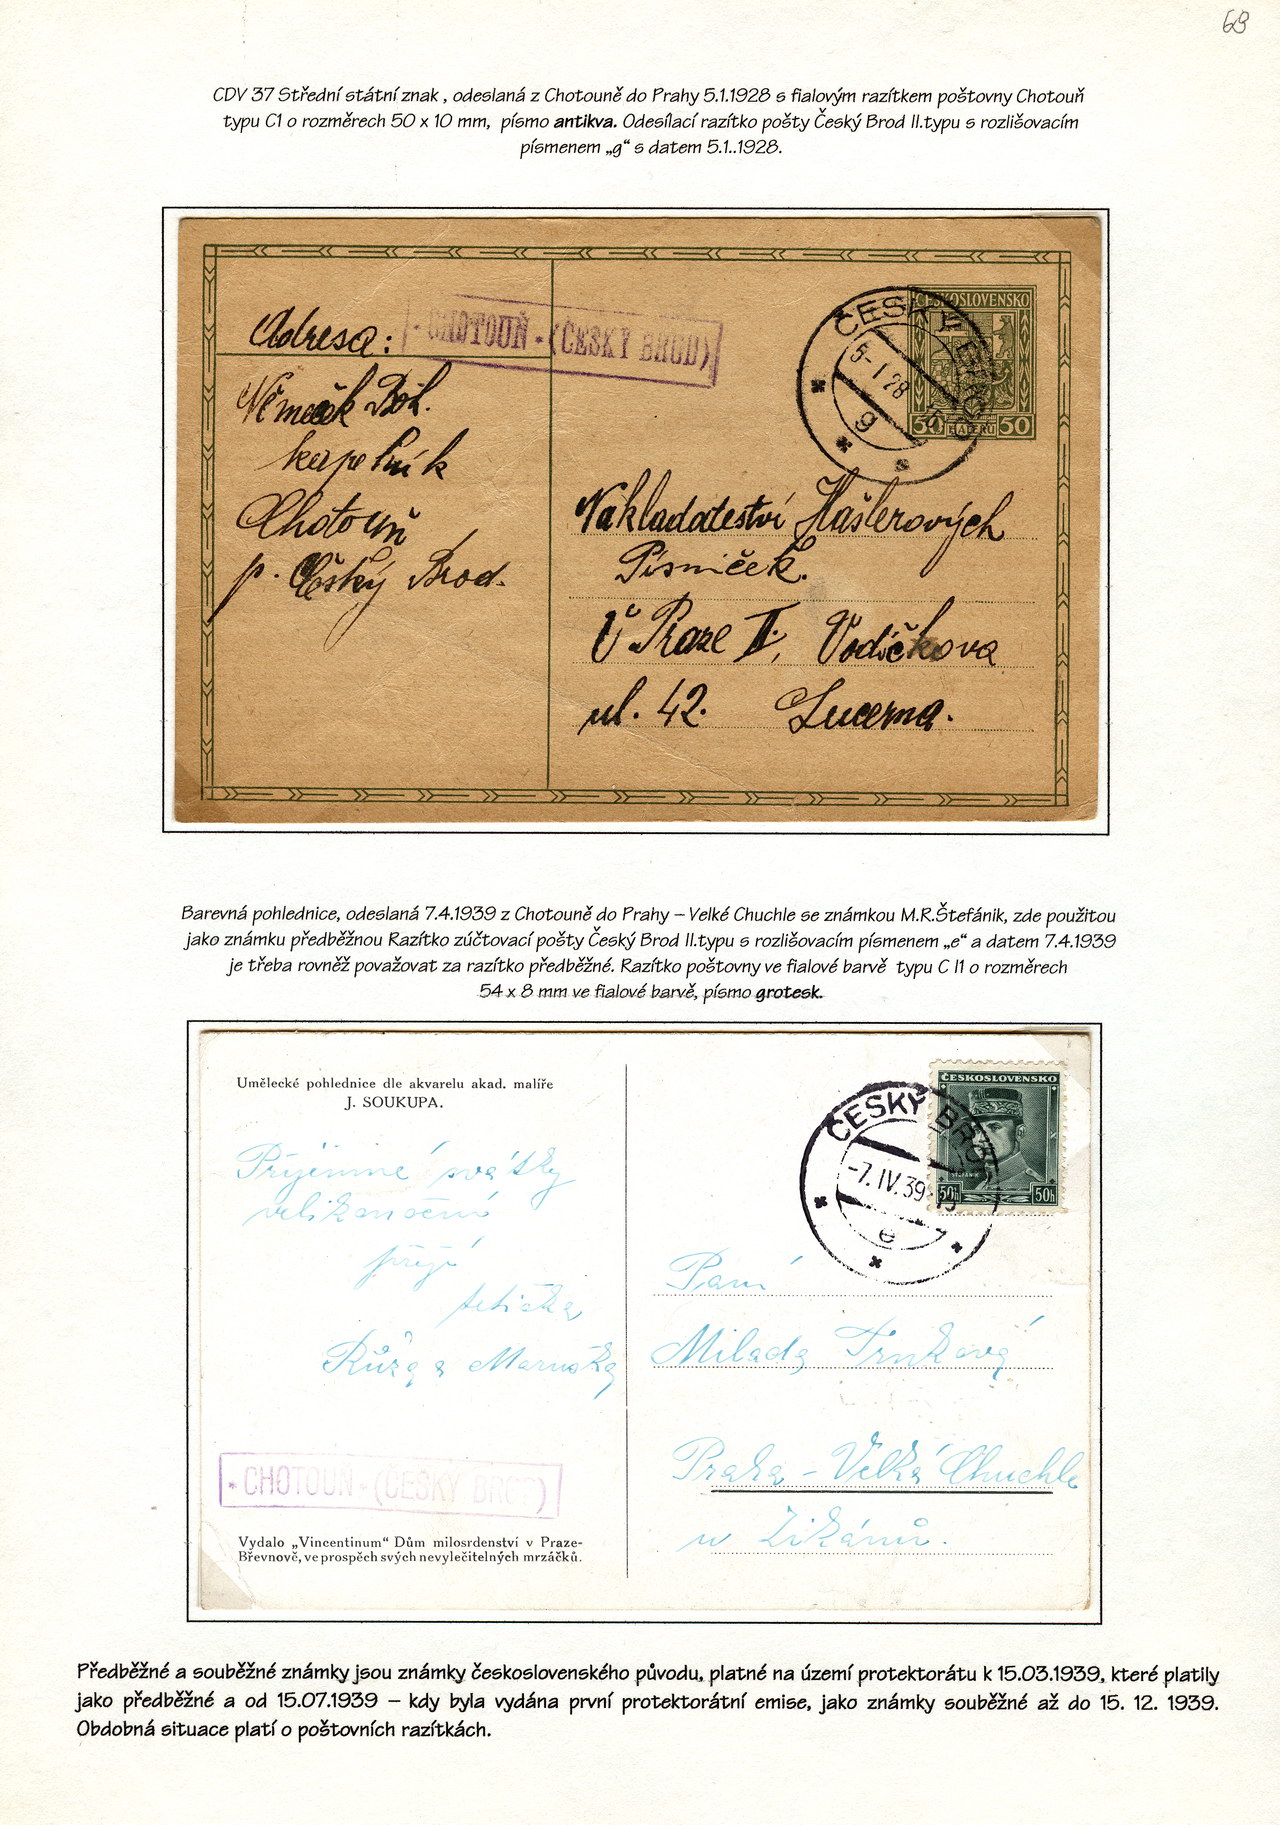 69
CDV 37 Střední státní znak , odeslaná z Chotouně do Prahy 5.1.1928 s fialovým razítkem poštovny Chotouň
typu C1 o rozměrech 50 x 10 mm, písmo antikva. Odesílací razítko pošty Český Brod II.typu s rozlišovacím
písmenem „g“ s datem 5.1..1928.
ČESKOSLOVENSKO
50 HALÉŘŮ 50
ČESKÝ BROD
5-I 28
g
* CHOTOUŇ * (ČESKÝ BROD)
Adresa:
Němeček Boh.
kapelník
Chotouň
p. Český Brod.
Nakladateství Hašlerových
Písniček.
V Praze II, Vodičkova
ul. 42. Lucerna.
Barevná pohlednice, odeslaná 7.4.1939 z Chotouně do Prahy – Velké Chuchle se známkou M.R.Štefánik, zde použitou
jako známku předběžnou Razítko zúčtovací pošty Český Brod II.typu s rozlišovacím písmenem „e“ a datem 7.4.1939
je třeba rovněž považovat za razítko předběžné. Razítko poštovny ve fialové barvě typu C I1 o rozměrech
54 x 8 mm ve fialové barvě, písmo grotesk.
Umělecké pohlednice dle akvarelu akad. malíře
J. SOUKUPA.
ČESKOSLOVENSKO
ŠTEFÁNIK
50h 50h
ČESKÝ BROD
-7. IV. 39
e
Příjemné svátky
velikonoční
přejí
tetička
Růža a Maruška
Paní
Milada Trnková
Praha - Velká Chuchle
u Zikánů.
* CHOTOUŇ * (ČESKÝ BROD)
Vydalo „Vincentinum“ Dům milosrdenství v Praze-
Břevnově, ve prospěch svých nevyléčitelných mrzáčků.
Předběžné a souběžné známky jsou známky československého původu, platné na území protektorátu k 15.03.1939, které platily
jako předběžné a od 15.07.1939 – kdy byla vydána první protektorátní emise, jako známky souběžné až do 15. 12. 1939.
Obdobná situace platí o poštovních razítkách.